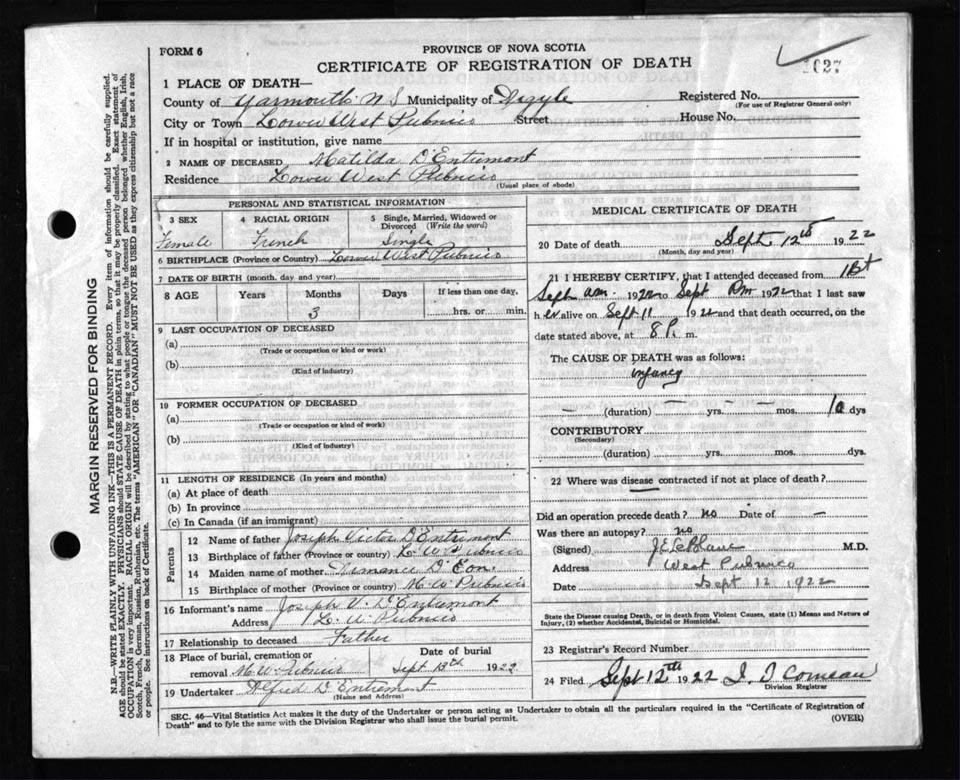 FORM 6
PROVINCE OF NOVA SCOTIA
CERTIFICATE OF REGISTRATION OF DEATH
1627
1 PLACE OF DEATH—
County of Yarmouth N S Municipality of Argyle Registered No.
(For use of Registrar General only)
City or Town Lower West Pubnico Street House No.
If in hospital or institution, give name
2 NAME OF DECEASED Matilda D'Entremont
Residence Lower West Pubnico
(Usual place of abode)
PERSONAL AND STATISTICAL INFORMATION
3 SEX 4 RACIAL ORIGIN 5 Single, Married, Widowed or Divorced (Write the word)
Female French Single
6 BIRTHPLACE (Province or Country) Lower West Pubnico
7 DATE OF BIRTH (month, day and year)
8 AGE Years Months Days If less than one day,
3 hrs. or min.
9 LAST OCCUPATION OF DECEASED
(a)
(Trade or occupation or kind or work)
(b)
(Kind of industry)
10 FORMER OCCUPATION OF DECEASED
(a)
(Trade or occupation or kind of work)
(b)
(Kind of industry)
11 LENGTH OF RESIDENCE (In years and months)
(a) At place of death
(b) In province
(c) In Canada (if an immigrant)
Parents
12 Name of father Joseph Victor D'Entremont
13 Birthplace of father (Province or country) L. W. Pubnico
14 Maiden name of mother D'Eon
15 Birthplace of mother (Province or country) M. W. Pubnico
16 Informant's name Joseph V. D'Entremont
Address L. W. Pubnico
17 Relationship to deceased Father
18 Place of burial, cremation or removal M. W. Pubnico Date of burial Sept 13th 1922
19 Undertaker Alfred D'Entremont
(Name and Address)
MEDICAL CERTIFICATE OF DEATH
20 Date of death Sept. 12th 1922
(Month, day and year)
21 I HEREBY CERTIFY, that I attended deceased from 1st
Sept am. 1922 to Sept Pm 1922 that I last saw
h er alive on Sept 11 1922 and that death occurred, on the
date stated above, at 8 P. m.
The CAUSE OF DEATH was as follows:
infancy
— (duration) — yrs. — mos. 10 dys
CONTRIBUTORY
(Secondary)
(duration) yrs. mos. dys.
22 Where was disease contracted if not at place of death?
Did an operation precede death? no Date of —
Was there an autopsy? no
(Signed) J E LeBlanc M.D.
Address West Pubnico
Date Sept 12 1922
State the Disease causing Death, or in death from Violent Causes, state (1) Means and Nature of
Injury, (2) whether Accidental, Suicidal or Homicidal.
23 Registrar's Record Number
24 Filed Sept 12th 1922 Comeau
Division Registrar
SEC. 46—Vital Statistics Act makes it the duty of the Undertaker or person acting as Undertaker to obtain all the particulars required in the "Certificate of Registration of
Death" and to fyle the same with the Division Registrar who shall issue the burial permit. (OVER)
MARGIN RESERVED FOR BINDING
N.B.—WRITE PLAINLY WITH UNFADING INK—THIS IS A PERMANENT RECORD. Every item of information should be carefully supplied.
AGE should be stated EXACTLY. PHYSICIANS should STATE CAUSE OF DEATH in plain terms, so that it may be properly classified. Exact statement of
OCCUPATION is very important. RACIAL ORIGIN will be described by stating to what people or tongue the deceased person belonged whether English, Irish,
Scotch, French, German, Russian, Ruthenian, etc. The terms "AMERICAN" OR "CANADIAN" MUST NOT BE USED as they express citizenship but not a race
or people. See instructions on back of Certificate.